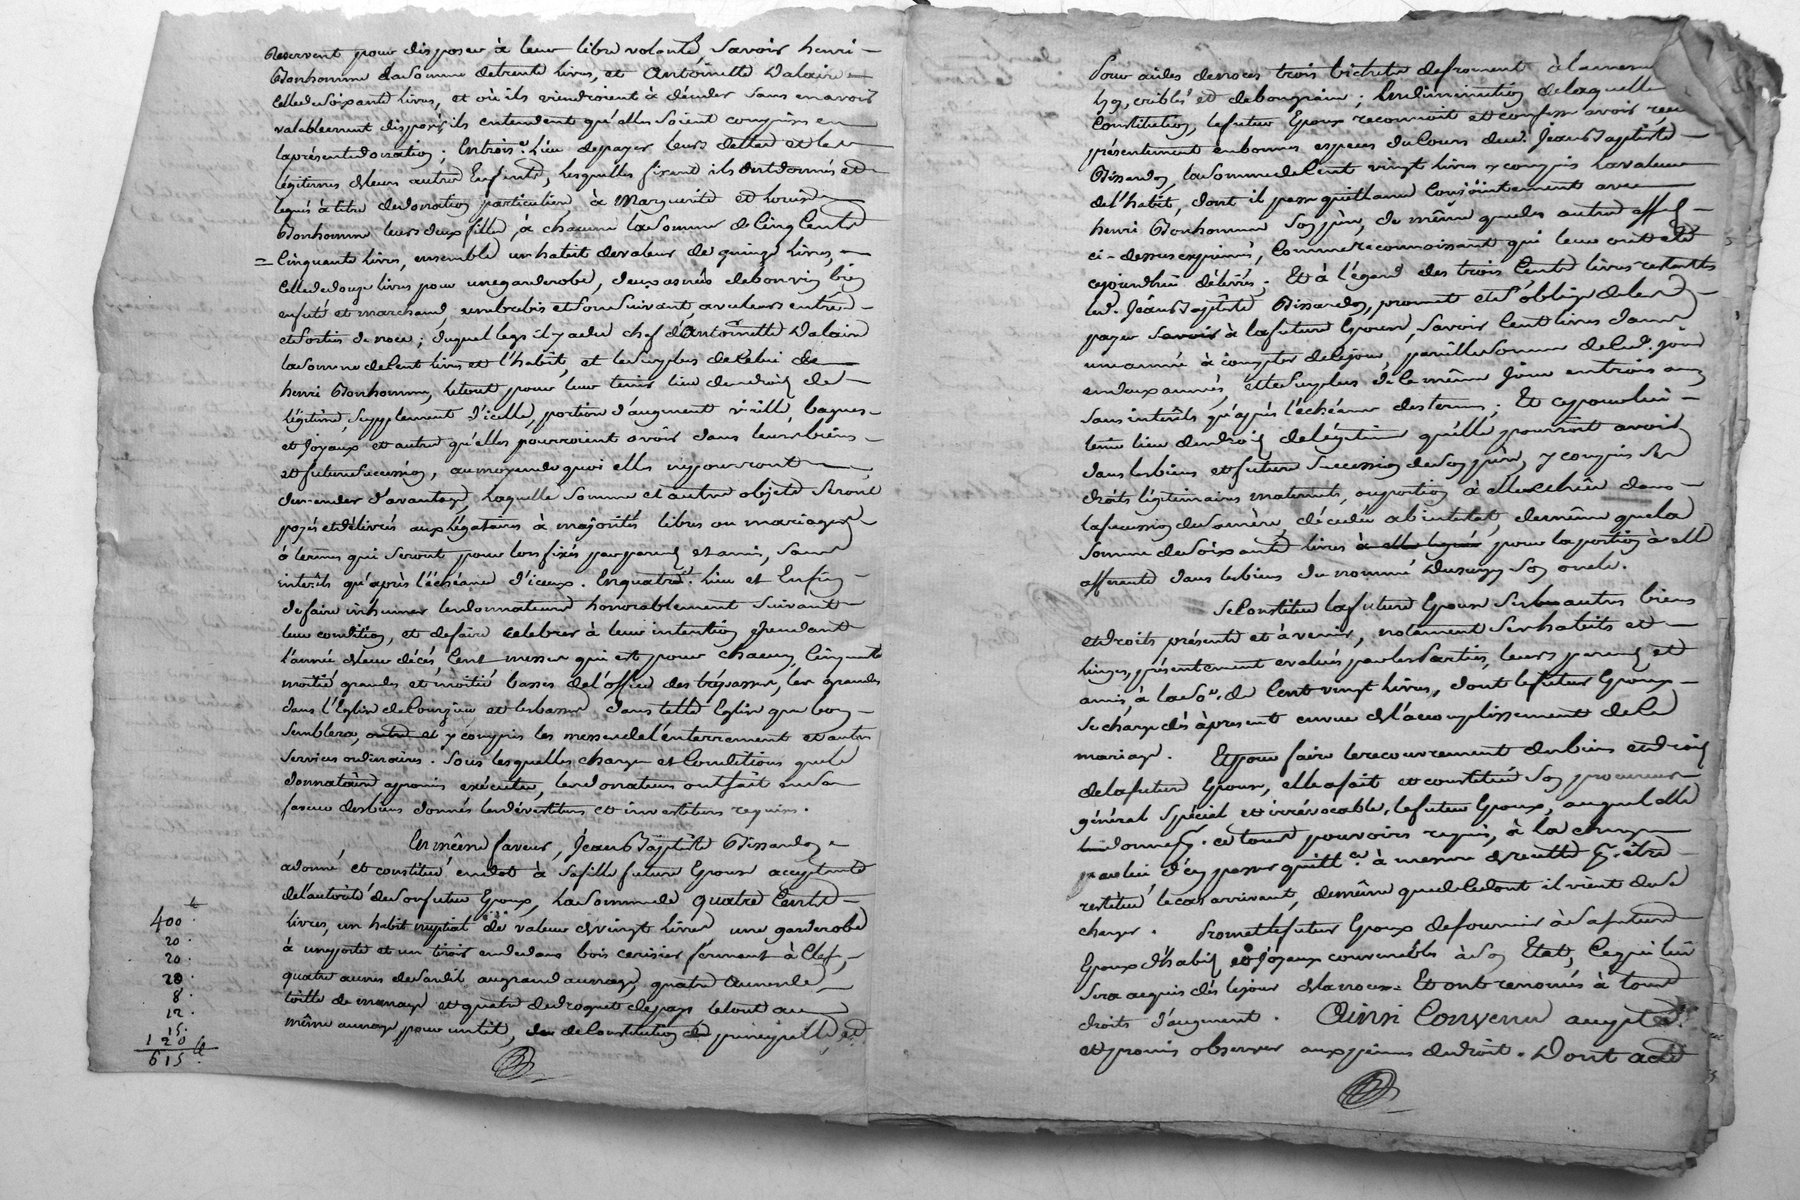 reservent pour disposer à leur libre volonté, Savoir henri
Bonhomme la Somme de trente livres, et Antoinette Dalaire
Celle de soixante livres, et où ils viendroient à décéder Sans en avoir
valablement disposés, ils entendent qu'elles Soient comprises en
la présente donation; En trois.e Lieu de payer leurs dettes et les
légitimes de leurs autres Enfants, lesquelles fixent ils ont donnés et
legués à titre de donation particuliere à Marguerite et Louise
Bonhomme leurs deux filles à chacune la Somme de Cinq Cents
Cinquante livres, ensemble un habit de valeur de quinze livres,
Celle de douze livres pour une garderobe, deux asnées de bon vin bien
enfuté et marchand, une brebis et Son Suivant, avec leurs entrées
et Sorties de noces; duquel legs il y a du chef d'antoinette Dalaire
la Somme de Cent livres et l'habit, et le Surplus de Celui de
henri Bonhomme, le tout pour leur tenir lieu de droits de
légitime, Supplement d'icelle, portion d'augment virille, bagues
et Joyaux et autres qu'elles pourroient avoir dans leurs biens
et future Succession, au moyen de quoi elles ne pourront
demander d'avantage, Laquelle Somme et autres objets Seront
payés et délivrés aux légataires à majorités libres ou mariages
à termes qui Seront pour lors fixés par parents et amis, Sans
interêts qu'après l'échéance d'iceux. En quatre.e Lieu et Enfin
de faire inhumer les donnateurs honorablement Suivant
leur condition, et de faire celebrer à leur intention pendant
l'année de leur décés, Cent messes qui est pour chacun Cinquante
moitié grandes et moitié basses de l'office des trépassés, les grandes
dans l'Eglise de Courzieu et les basses dans telle Eglise que bon
Semblera, outre et y compris les messes de l'enterrement et autres
Services ordinaires. Sous lesquelles charges et Conditions que le
donnataire a promis exécuter, les donateurs ont fait en sa
faveur des biens donnés les dévestitures et investitures requises.
En même faveur, Jean Baptiste Bissardon
a donné et constitué en dot à Sa fille future Epouse acceptante
de l'autorité de Son futur Epoux, La Somme de quatre Cents
livres, un habit nuptial de valeur de vingt livres une garderobe
à une porte et un tiroir en dedans bois cerisier fermant à Clef,
quatre aunes de Sandit au grand aunage, quatre aunes de
toille de menage et quatre de droguet de pays le tout au
même aunage pour un lit, de Constitution principelle, et
400.tt
20.
20.
20.
8.
12.
15.
120
615.tt
Pour aides de noces trois bichets de froment à la mesure
criblés et de bon grain; En diminution de laquelle
Constitution, le futur Epoux reconnoit et confesse avoir reçu
présentement en bonnes especes du Cours du d. Jean Baptiste
Bissardon la Somme de Cent vingt livres y compris la valeur
de l'habit, dont il passe quittance Conjointement avec
henri Bonhomme Son père, de même que des autres effets
ci-dessus exprimés, Comme reconnoissant qu'ils leur ont été
cejourd'hui délivrés. Et à l'égard des trois Cents livres restantes
led. Jean Baptiste Bissardon, promet et S'oblige de les
payer Savoir à la future Epouse, Savoir Cent livres dans
une année à compter de Ce jour, pareille Somme de Ced. jour
en deux années, et le Surplus de le même jour en trois ans
Sans interêts qu'après l'échéance des termes. Et ce pour lui
tenir lieu de droits de légitime qu'elle pourroit avoir
dans les biens et future Succession de Son père, y compris Ses
droits légitimaires maternels, ou portion à elle échûe dans
la succession de Sa mère, décédée ab intestat, de même que la
Somme de Soixante livres à elle leguée pour la portion à elle
afferente dans les biens du nommé Duzuzay Son oncle.
Se Constitue la future Epouse Ses autres biens
et droits présents et à venir, notament Ses habits et
linges, présentement evalués par les Parties, leurs parents et
amis à la So.e de Cent vingt livres, dont le futur Epoux
Se charge dès à présent en vue de l'accomplissement de Ce
mariage. Et pour faire le recouvrement des biens et droits
de la future Epouse, elle a fait et constitué Son procureur
général Spécial et irrévocable, le futur Epoux, auquel elle
donne à ce tout pouvoirs requis, à la charge
par lui d'en passer quitt.ce à mesure de recette p.r être
restitué le cas arrivant, de même que de Ce dont il vient de Se
charger. Promet le futur Epoux de fournir à Sa future
Epouse d'habits et Joyaux convenables à Son Etat, Ce qui lui
Sera acquis dès le jour de la noce. Et ont renoncés à tous
droits d'augment. Ainsi Convenu accepté
et promis observer aux peines de droit. Dont acte